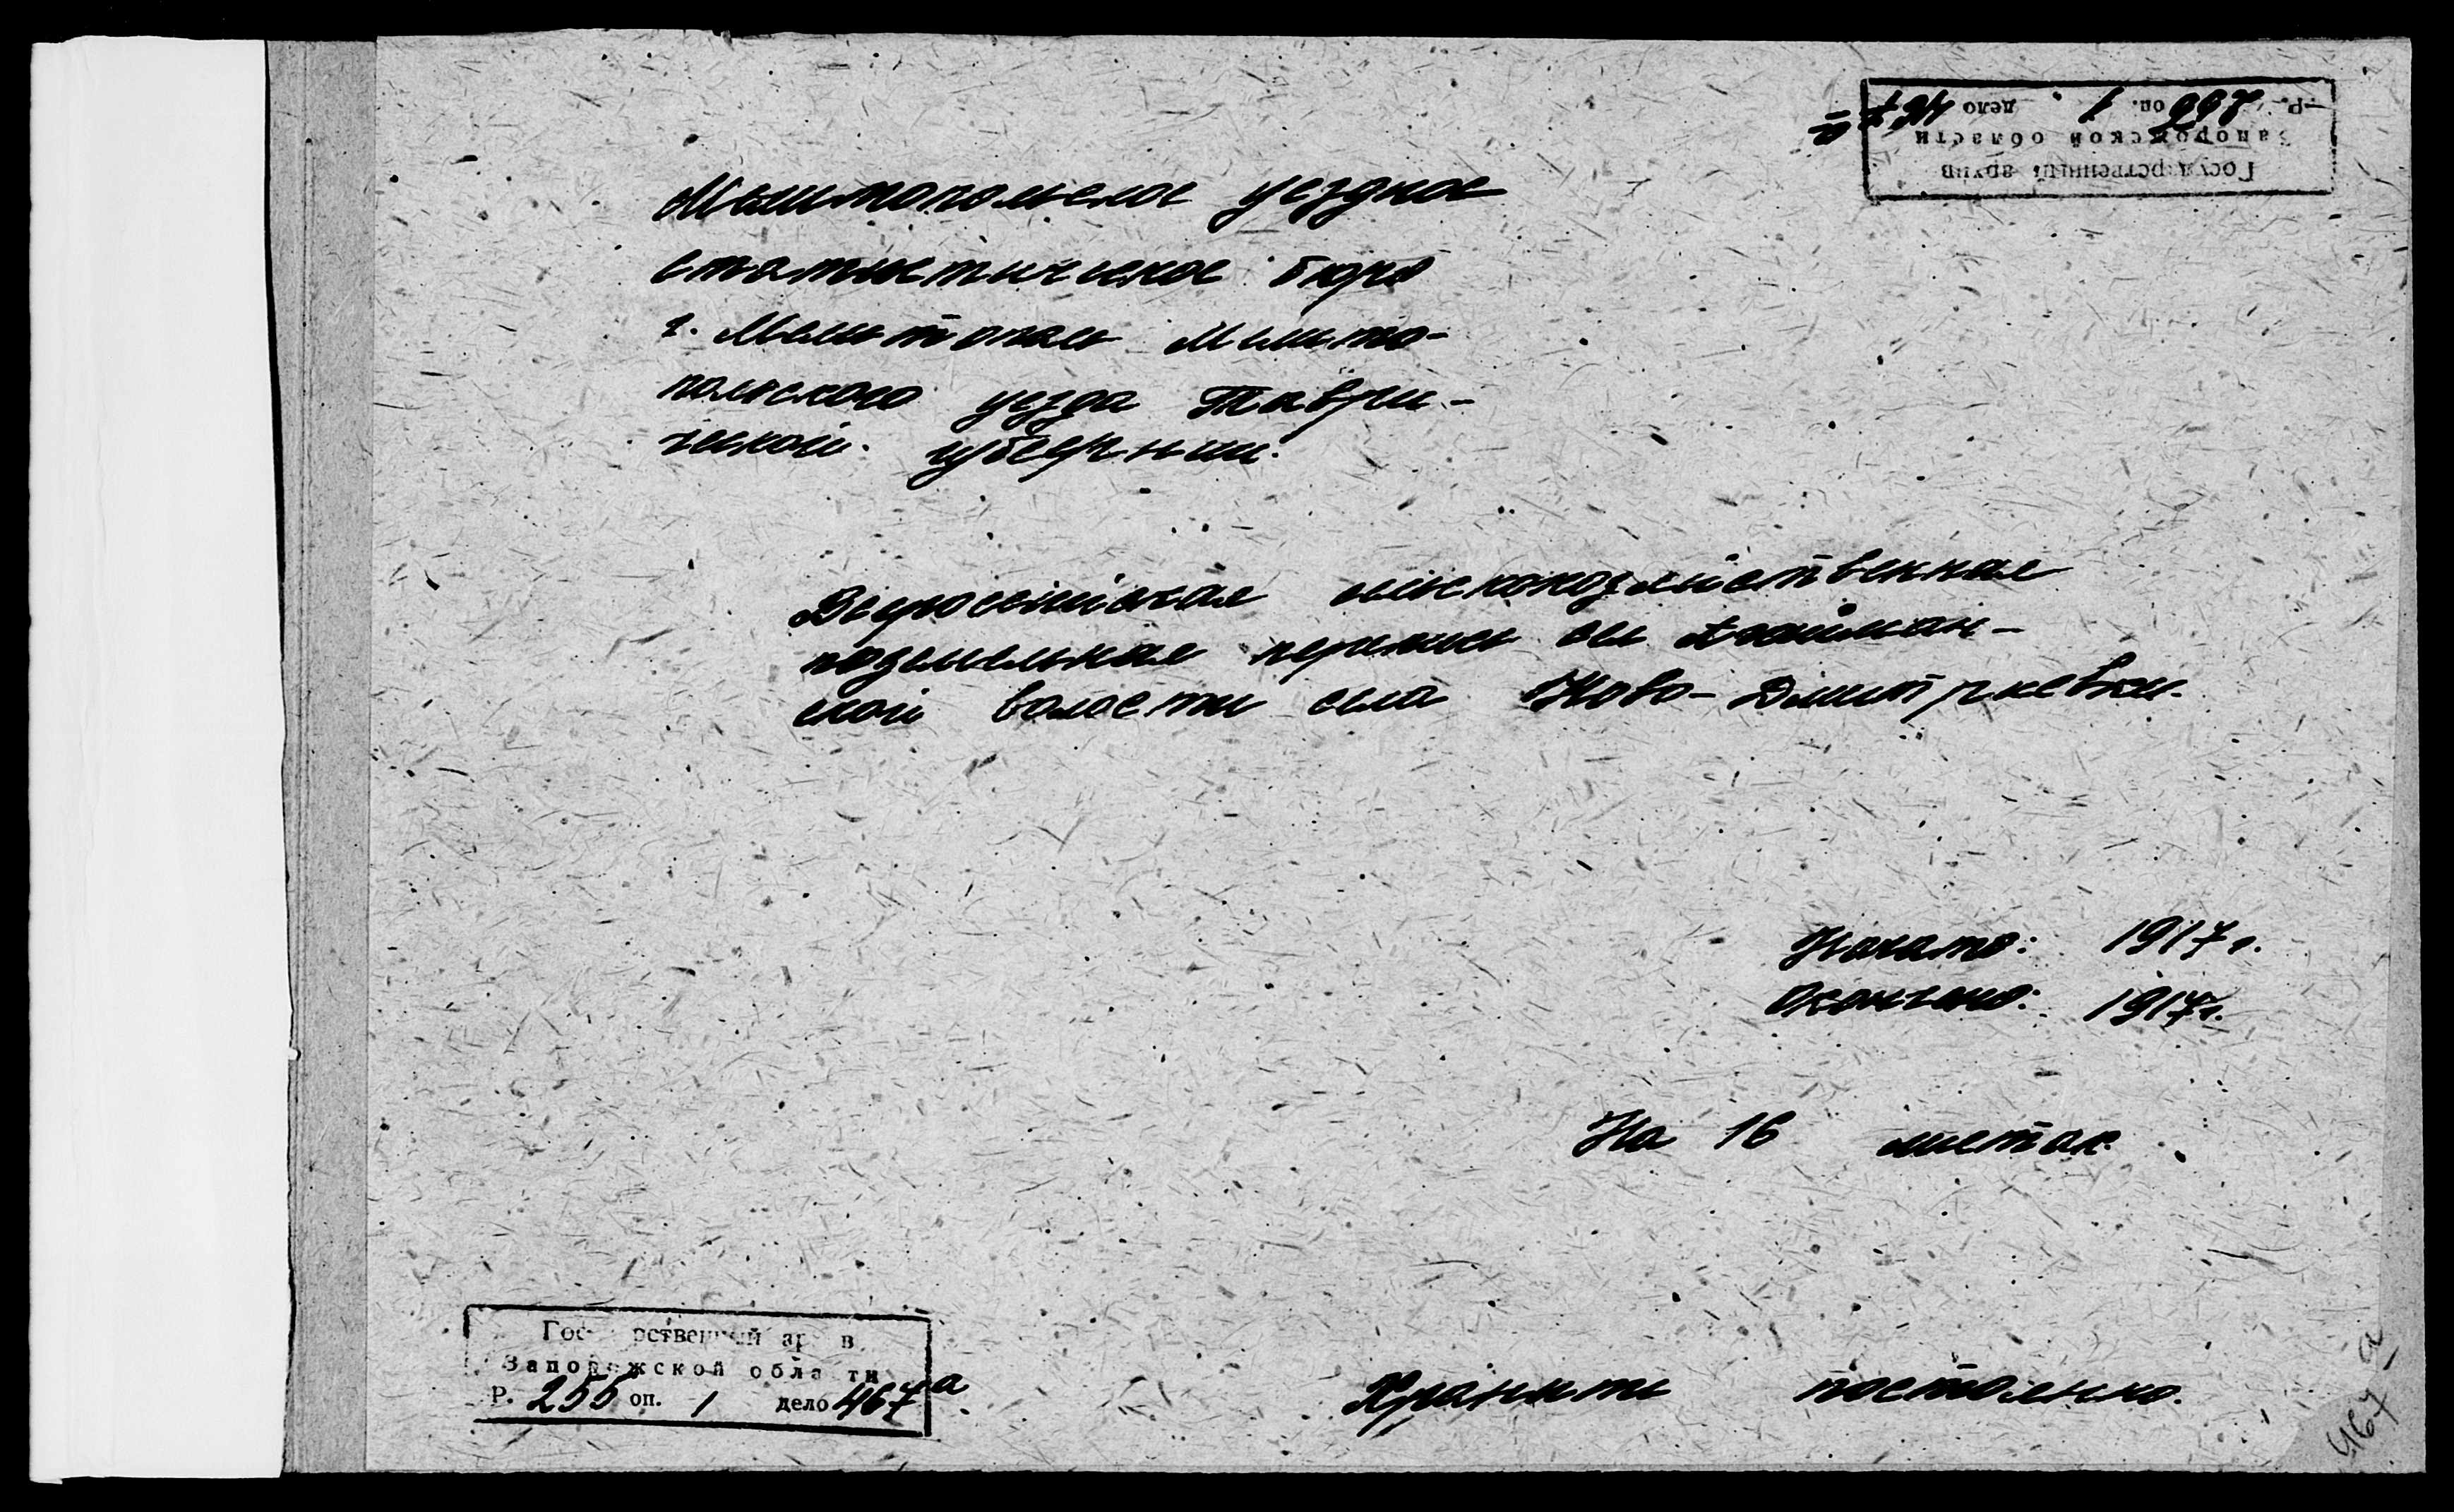 Государственный архив
Запорожской области
Р. 255 оп. 1 дело 467 а
Мелитопольское уездное
статистическое бюро
г. Мелитополь Мелито-
польского уезда Таври-
ческой губернии.
Всероссийская сельскохозяйственная
поземельная перепись
ской волости села Ново-Дмитриевки.
Начато: 1917 г.
Окончено: 1917 г.
На 16 листах
Хранить постоянно.
Гос рственный ар в
Запорожской обла ти
Р. 255 оп. 1 дело 467 а
467 а